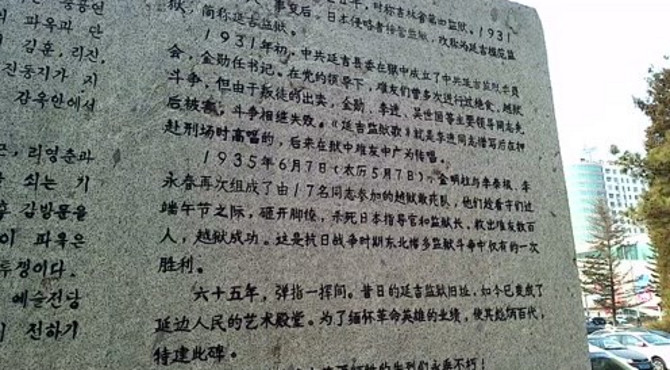 파옥과 단
김훈, 리진,
진동지가 지
감옥안에서
리영춘과
쇠는 기
감방문을
이 파옥은
투쟁이다.
예술전당
전하기
时称吉林省第四监狱。1931
事变后，日本侵略者接管监狱，改称为延吉模范监
狱，简称延吉监狱。
1931年初，中共延吉县委在狱中成立了中共延吉监狱委员
会，金勋任书记。在党的领导下，难友们曾多次进行过绝食、越狱
斗争，但由于叛徒的出卖，金勋、李进、吴世国等主要领导同志先
后被害，斗争相继失败。《延吉监狱歌》就是李进同志谱写后在押
赴刑场时高唱的，后来在狱中难友中广为传唱。
1935年6月7日（太历5月7日），金明柱与李泰根、李
永春再次组成了由17名同志参加的越狱敢死队，他们趁看守们过
端午节之际，砸开脚镣，杀死日本指导官和监狱长，救出难友数百
人，越狱成功。这是抗日战争时期东北诸多监狱斗争中仅有的一次
胜利。
六十五年，弹指一挥间。昔日的延吉监狱旧址，如今已变成了
延边人民的艺术殿堂。为了缅怀革命英雄的业绩，使其彪炳百代，
特建此碑。
的先烈们永垂不朽！